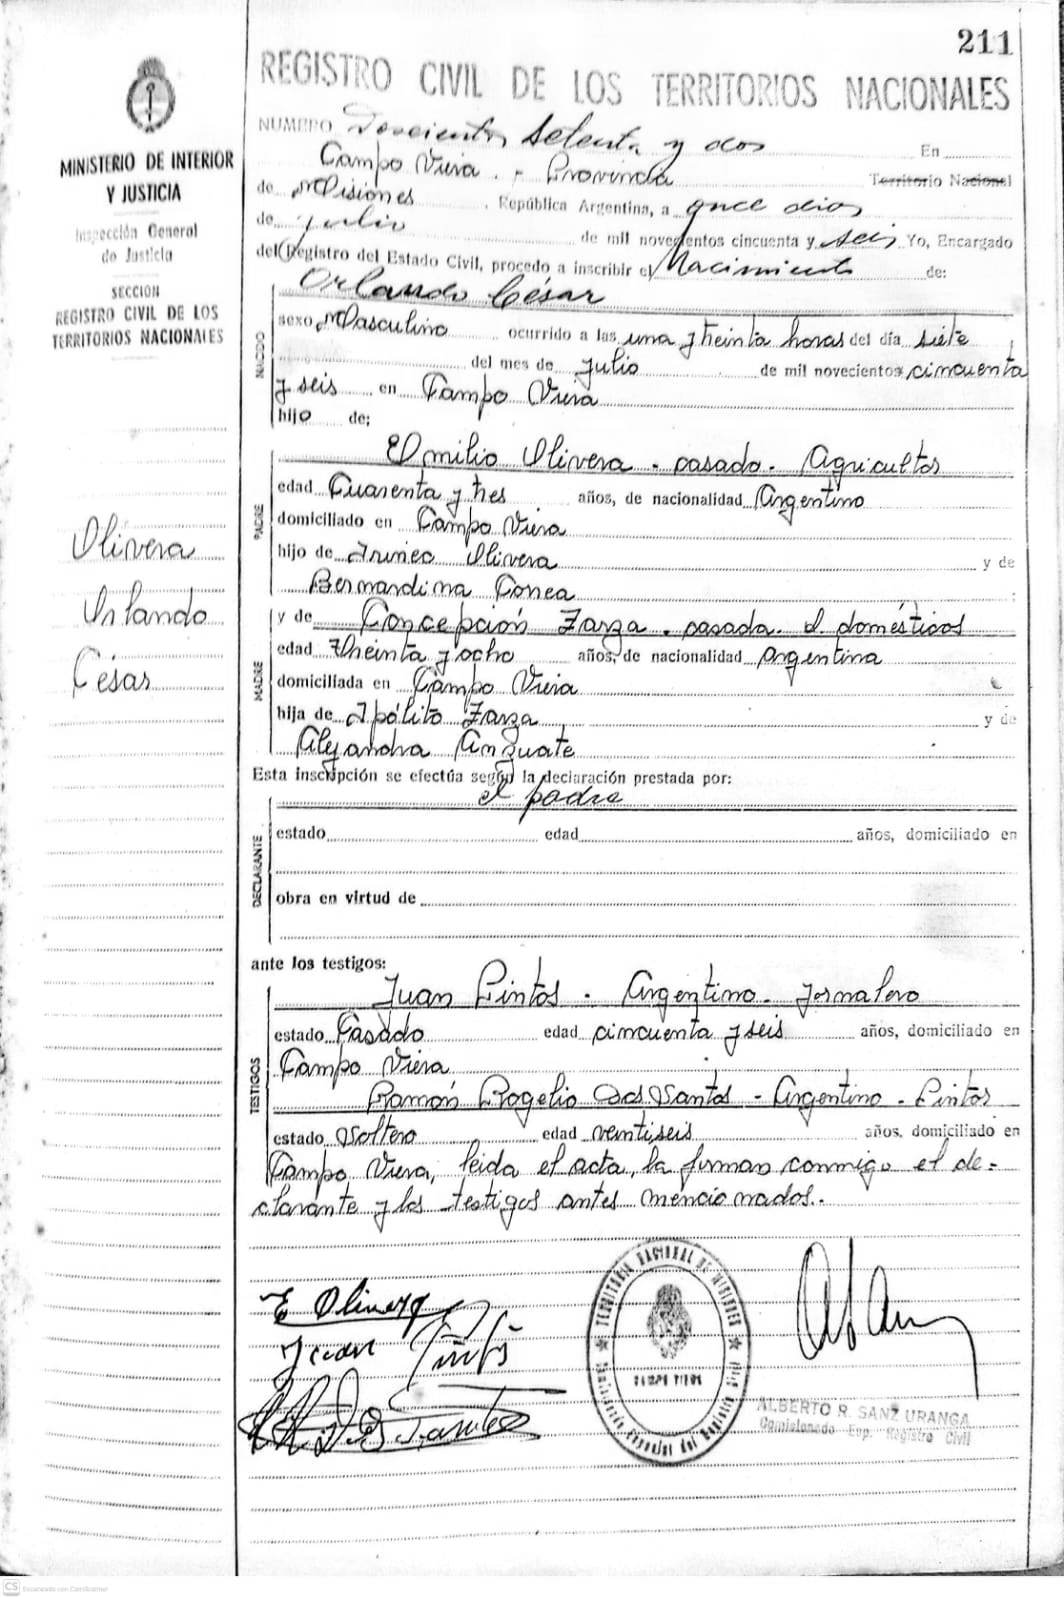 211
REGISTRO CIVIL DE LOS TERRITORIOS NACIONALES
MINISTERIO DE INTERIOR
Y JUSTICIA
Inspección General
de Justicia
SECCION
REGISTRO CIVIL DE LOS
TERRITORIOS NACIONALES
Olivera
Orlando
César
NUMERO Doscientos setenta y dos En
Campo Viera. - Provincia Territorio Nacional
de Misiones, República Argentina, a once dias
de julio de mil novecientos cincuenta y seis Yo, Encargado
del Registro del Estado Civil, procedo a inscribir el Nacimiento de:
Orlando César
NACIDO
sexo Masculino ocurrido a las una y treinta horas del día siete
del mes de Julio de mil novecientos cincuenta
y seis en Campo Viera
hijo de:
PADRE
Emilio Olivera - casado - Agricultor
edad Cuarenta y tres años, de nacionalidad Argentino
domiciliado en Campo Viera
hijo de Irineo Olivera y de
Bernardina Correa
MADRE
y de Concepción Zarza - casada - q. domésticos
edad Treinta y ocho años, de nacionalidad argentina
domiciliada en Campo Viera
hija de Ipólito Zarza y de
Alejandra
Esta inscripción se efectúa según la declaración prestada por:
el padre
DECLARANTE
estado edad años, domiciliado en
obra en virtud de
ante los testigos:
TESTIGOS
Juan Pintos - Argentino - Jornalero
estado Casado edad cincuenta y seis años, domiciliado en
Campo Viera
Ramón Rogelio Dos Santos - Argentino - Pintor
estado Soltero edad veintiseis años, domiciliado en
Campo Viera, leida el acta, la firman conmigo el de=
clarante y los testigos antes mencionados.-
E Olivera
Juan Pintos
TERRITORIO NACIONAL DE MISIONES
CAMPO VIERA
Comisionado Especial del Registro Civil
ALBERTO R. SANZ URANGA
Comisionado Esp. Registro Civil
CS Escaneado con CamScanner